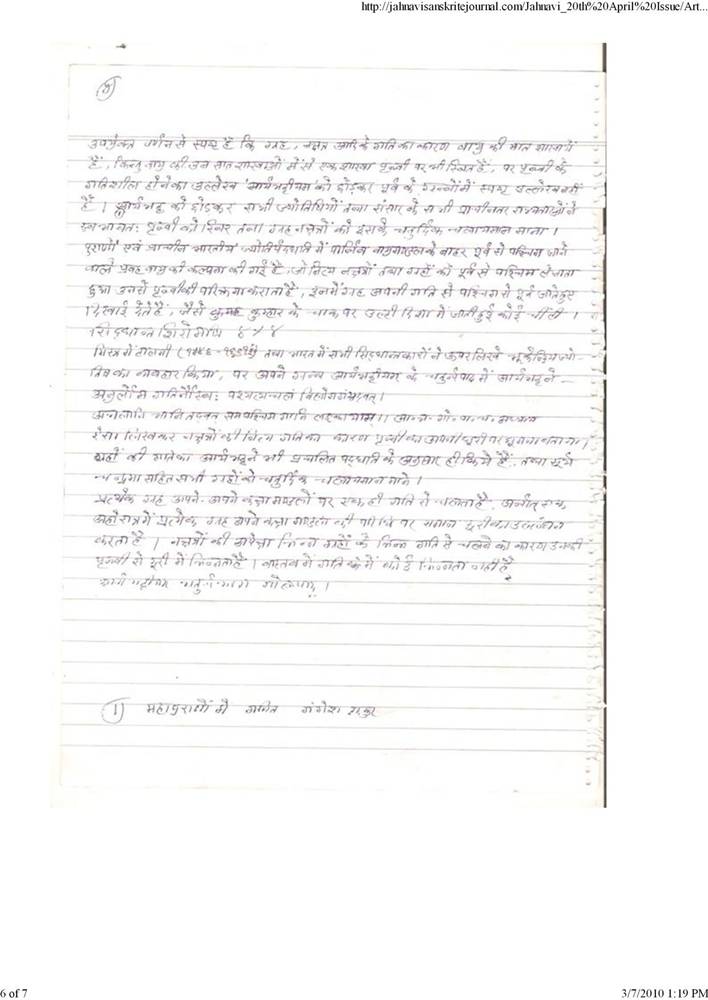 http://jahnavisanskritejournal.com/Jahnavi_20th%20April%20Issue/Art...
उपर्युक्त वर्णन से स्पष्ट है कि ग्रह, नक्षत्र आदि के गति का कारण वायु की सात शाखायें
हैं, किन्तु वायु की उन सात शाखाओं में से एक शाखा पृथ्वी पर भी स्थित है, पर पृथ्वी के
गतिशील होने का उल्लेख 'आर्यभट्टीयम' को छोड़कर पूर्व के ग्रन्थों में स्पष्ट उल्लेख नहीं
है। आर्यभट्ट को छोडकर सभी ज्योतिषियों तथा संसार के सभी प्राचीनतर सभ्यताओं ने
स्वभावतः पृथ्वी को स्थिर तथा ग्रह नक्षत्रों को इसके चतुर्दिक चलायमान माना।
पुराणों एवं प्राचीन भारतीय ज्योतिषपद्धति में पार्थिव वायुमण्डल के बाहर पूर्व से पश्चिम जाने
वाले प्रवह वायु की कल्पना की गई है, जो नित्य नक्षत्रों तथा ग्रहों को पूर्व से पश्चिम ले जाता
हुआ उनसे पृथ्वी की परिक्रमा कराता है, इनमें ग्रह अपनी गति से पश्चिम से पूर्व जाते हुए
दिखाई देते हैं, जैसे कुम्हार के चाक पर उल्टी दिशा में जाती हुई कोई चींटी।
सिद्धान्त शिरोमणि
मिस्र में टालमी तथा भारत में सभी सिद्धान्तकारों ने ऊपर लिखे भूकेन्द्रिय ज्यो-
तिष का व्यवहार किया, पर अपने ग्रन्थ आर्यभट्टीयम के चतुर्थपाद में आर्यभट्ट ने -
अनुलोम गतिर्नौस्थः पश्यत्यचलं विलोमगं यद्वत्।
अचलानि भानि तद्वत् समपश्चिमगानि लङ्कायाम्।।
ऐसा लिखकर नक्षत्रों की नित्य गति का कारण पृथ्वी का अपनी धुरी पर घूमना बताया।
ग्रहों की गति का आर्यभट्ट ने भी प्रचलित पद्धति के अनुसार ही किये हैं, तथा सूर्य
चन्द्रमा सहित सभी ग्रहों को चतुर्दिक चलायमान माने।
प्रत्येक ग्रह अपने-अपने कक्षा मण्डलों पर एक ही गति से चलता है, अर्थात् एक
अहोरात्र में प्रत्येक ग्रह अपने कक्षा मण्डल की परिधि पर समान दूरी का उल्लंघन
करता है। नक्षत्रों की अपेक्षा भिन्न ग्रहों के भिन्न गति से चलने का कारण उनकी
पृथ्वी से दूरी में भिन्नता है। वास्तव में गति में कोई भिन्नता नहीं है
आर्यभट्टीयम चतुर्थ भाग गोलपाद।
1) महापुराणों में गणित गंगेश ठाकुर
6 of 7
3/7/2010 1:19 PM